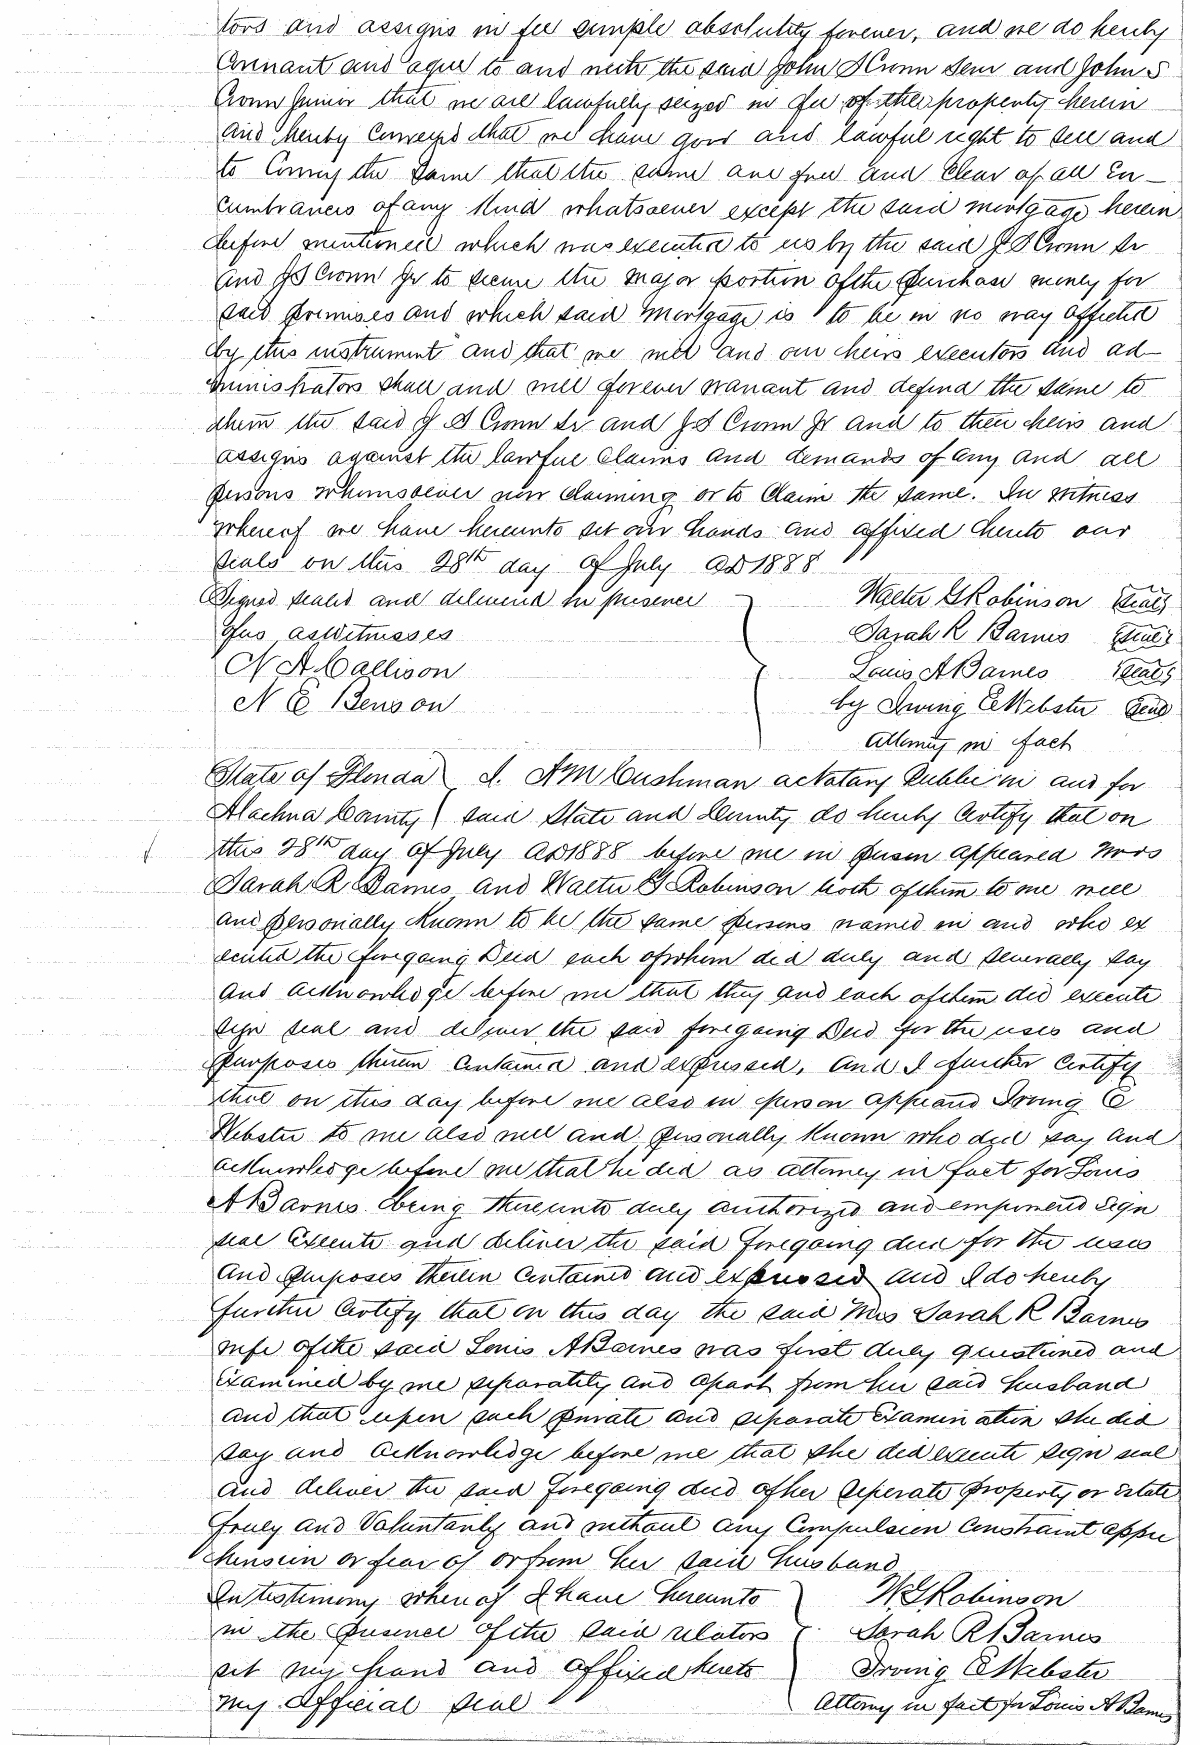 tors and assigns in fee simple absolutely forever, and we do hereby
Covenant and agree to and with the said John S Cronn Senr and John S
Cronn Junior that we are lawfully seized in fee of the property herein
and hereby Conveyed that we have good and lawful right to sell and
to Convey the same that the same are free and Clear of all En-
cumbrances of any Kind whatsoever except the said mortgage herein
before mentioned which was executed to us by the said J S Cronn Sr
and J S Cronn Jr to secure the major portion of the purchase money for
said premises and which said Mortgage is to be in no way affected
by this instrument and that we will and our heirs executors and ad-
ministrators shall and will forever warrant and defend the same to
them the said J S Cronn Sr and J S Cronn Jr and to their heirs and
assigns against the lawful Claims and demands of any and all
persons whomsoever now Claiming or to Claim the same. In witness
whereof we have hereunto set our hands and affixed hereto our
seals on this 28th day of July AD 1888
Signed sealed and delivered in presence
of us as Witnesses
N A Callison
N E Benson
Walter G Robinson (Seal)
Sarah R Barnes (Seal)
Louis A Barnes (Seal)
by Irving E Webster Seal
Attorney in fact
State of Florida } I. A M Cushman a Notary Public in and for
Alachua County } said State and County do hereby Certify that on
this 28th day of July AD 1888 before me in person appeared Mrs
Sarah R Barnes and Walter G Robinson both of them to me well
and personally Known to be the same persons named in and who ex
ecuted the foregoing Deed each of whom did duly and severally say
and acknowledge before me that they and each of them did execute
sign seal and deliver the said foregoing Deed for the uses and
purposes therein contained and expressed, and I further Certify
that on this day before me also in person appeard Irving E
Webster to me also well and personally Known who did say and
acknowledge before me that he did as attorney in fact for Louis
A Barnes being thereunto duly authorized and empowered sign
seal Execute and deliver the said foregoing deed for the uses
and purposes therein Contained and expressed and I do hereby
further Certify that on this day the said Mrs Sarah R Barnes
wife of the said Louis A Barnes was first duly questioned and
Examined by me separately and apart from her said husband
and that upon such private and separate Examination she did
say and acknowledge before me that she did execute sign seal
and deliver the said foregoing deed of her seperate property or Estate
freely and Voluntarily and without any Compulsion Constraint appre
hension or fear of or from her said husband
In testimony whereof I have hereunto
in the presence of the said relators
set my hand and affixed hereto
my official seal
W G Robinson
Sarah R Barnes
Irving E Webster
Attorney in fact for Louis A Barnes